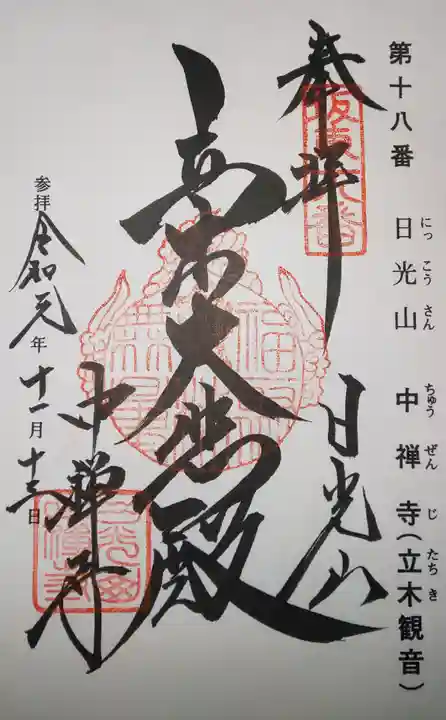 第十八番 日光山 中禅寺(立木観音)
にっ こう さん ちゅう ぜん じ たち き
奉拝
坂東十八番
日光山
立木大悲殿
中禅寺
参拝 令和元年十一月十三日